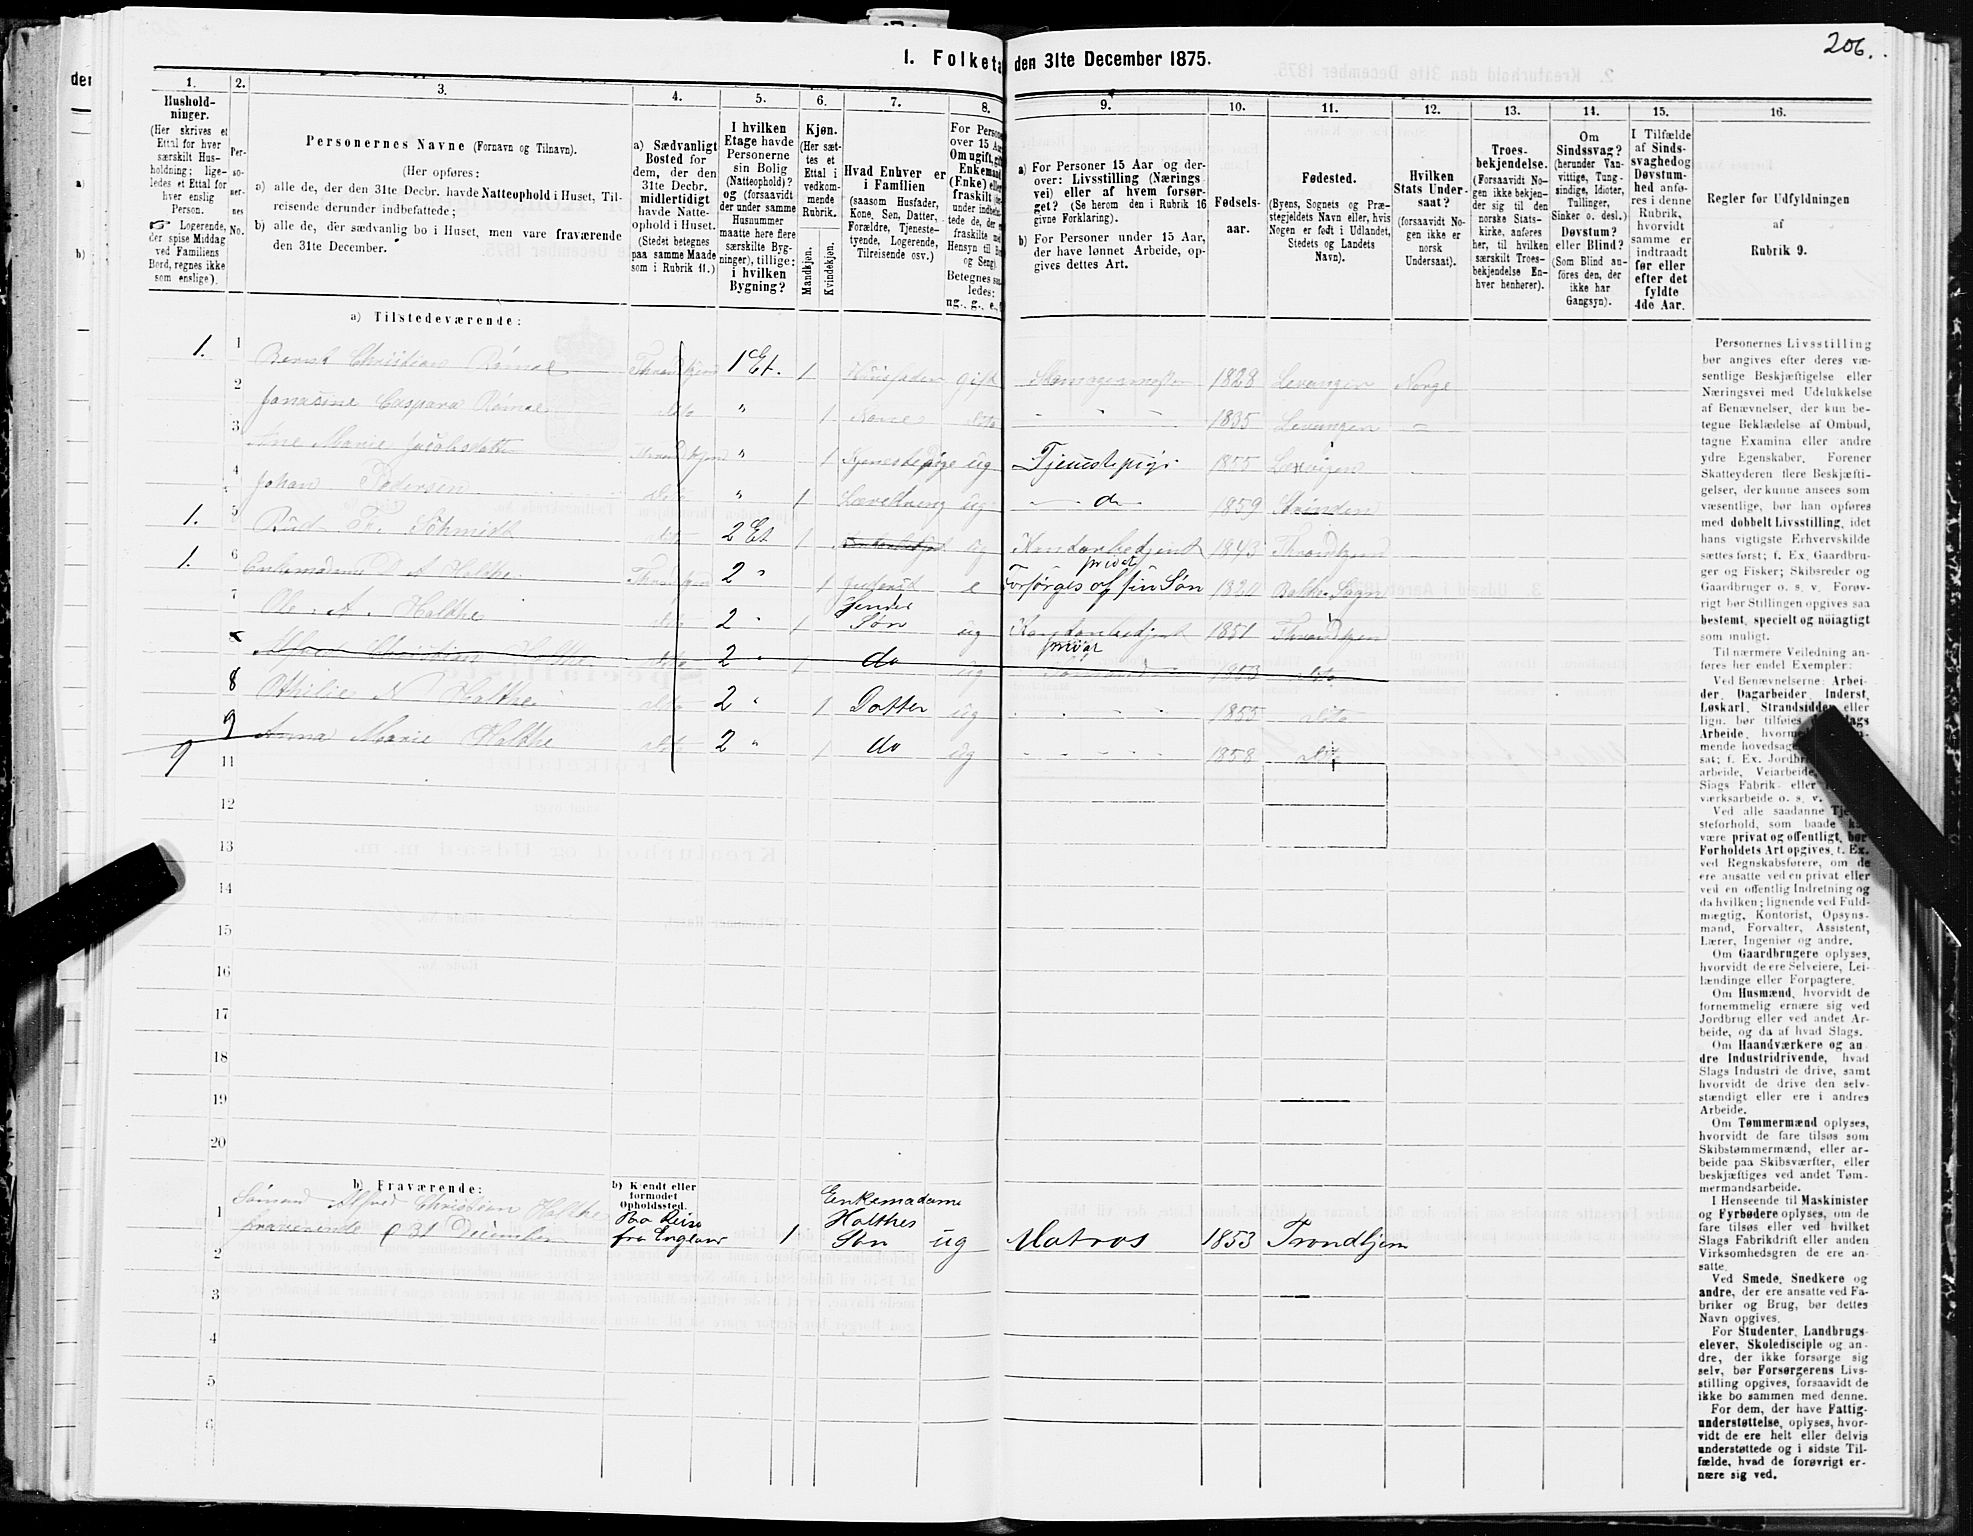 206.
1. Folketa den 31te December 1875.
1. 2. 3. 4. 5. 6. 7. 8. 9. 10. 11. 12. 13. 14. 15. 16.
Hushold-
ninger.
(Her skrives et
Ettal for hver
særskilt Hus-
holdning; lige-
ledes et Ettal for
hver enslig
Person.
☞ Logerende,
der spise Middag
ved Familiens
Bord, regnes ikke
som enslige).
Per-
so-
ner-
nes
No.
Personernes Navne (Fornavn og Tilnavn).
(Her opføres:
a) alle de, der den 31te Decbr. havde Natteophold i Huset, Til-
reisende derunder indbefattede;
b) alle de, der sædvanlig bo i Huset, men vare fraværende
den 31te December.
a) Sædvanligt
Bosted for
dem, der den
31te Decbr.
midlertidigt
havde Natte-
ophold i Huset.
(Stedet betegnes
paa samme Maade
som i Rubrik 11.)
I hvilken
Etage havde
Personerne
sin Bolig
(Natteophold)?
og (forsaavidt
der under samme
Husnummer
maatte høre flere
særskilte Byg-
ninger), tillige:
i hvilken
Bygning?
Kjøn.
(Her sæt-
tes et
Ettal i
vedkom-
mende
Rubrik.
Mandkjøn.
Kvindekjøn.
Hvad Enhver er
i Familien
(saasom Husfader,
Kone, Søn, Datter,
Forældre, Tjeneste-
tyende, Logerende,
Tilreisende osv.)
For Persone
over 15 Aar
Om ugift, gift
Enkemand
(Enke) eller
fraskilt
under
tede de, der
fraskilte
Hensyn til Bo
og Seng).
Betegnes saa-
ledes:
ug., g., e.,
a) For Personer 15 Aar og der-
over: Livsstilling (Nærings
vei) eller af hvem forsør-
get? (Se herom den i Rubrik 16
givne Forklaring).
b) For Personer under 15 Aar,
der have lønnet Arbeide, op-
gives dettes Art.
Fødsels-
aar.
Fødested.
(Byens, Sognets og Præ-
stegjeldets Navn eller, hvis
Nogen er født i Udlandet,
Stedets og Landets
Navn).
Hvilken
Stats Under-
saat?
(forsaavidt No-
gen ikke er
norsk
Undersaat).
Troes-
bekjendelse.
(Forsaavidt No-
gen ikke bekjen-
der sig til den
norske Stats-
kirke, anføres
her, til hvilken
særskilt Troes-
bekjendelse En-
hver henhører).
Om
Sindssvag?
(herunder Van-
vittige, Tung-
sindige, Idioter,
Tullinger,
Sinker o. desl.)
Døvstum?
eller Blind?
(Som Blind an-
føres den, der
ikke har
Gangsyn).
I Tilfælde
af Sinds-
svaghed og
Døvstum-
hed anfø-
res i denne
Rubrik,
hvorvidt
samme er
indtraadt
før eller
efter det
fyldte
4de Aar.
Regler for Udfyldningen
af
Rubrik 9.
a) Tilstedeværende:
1. 1 Bernt Christian Rømoe Throndhjem 1 Et. 1 Huusfader gift 1828 Levanger Norge
2 Janasine Caspara Rømoe dito " 1 Kone dito 1835 Levanger
3 Ane Marie Jacobsdatter " 1 Tjenestepige ug Tjenestepige 1855
4 Johan Pedersen dito " 1 ug do 1859 Strinden
1. 5 Fr. Schmidt dito 2 Et 1 ug Kontorbetjent privat 1843 Throndhjem
1. 6 Enkemadame A Holthe Throndhjem 2 " 1 e Forsørges af sin Søn
7 Ole A. Holthe dito 2 " 1 Hendes Søn ug Kontorbetjent privat 1851 Throndhjem
Alfred Christian Holthe dito 2 " 1 do ug Sømand 1853 dito
8 Othilie N Holthe dito 2 " 1 Datter ug 1855 dito
9 Anna Marie Holthe dito 2 " 1 do ug 1858 dito
9
11
12
13
14
15
16
17
18
19
20
b) Fraværende:
b) Kjendt eller
formodet
Opholdssted.
1 Sømand Alfred Christian Holthe
fraværende 31 December
Paa Reise
fra England 1 Enkemadame
Holthes
Søn ug Matros 1853 Trondhjem
2
3
4
5
6
Personernes Livsstilling
bør angives efter deres væ-
sentlige Beskjæftigelse eller
Næringsvei med Udelukkelse
af Benævnelser, der kun be-
tegne Beklædelse af Ombud,
tagne Examina eller andre
ydre Egenskaber. Forener
Skatteyderen flere Beskjæfti-
gelser, der kunne ansees som
væsentlige, bør han opføres
med dobbelt Livsstilling, idet
hans vigtigste Erhvervskilde
sættes først; f. Ex. Gaardbru-
ger og Fisker; Skibsreder og
Gaardbruger o. s. v. Forøv-
rigt bør Stillingen opgives saa
bestemt, specielt og nöiagtigt
som muligt.
Til nærmere Veiledning an-
føres her endel Exempler:
Ved Benævnelserne: Arbei-
der, Dagarbeider, Inderst,
Løskarl, Strandsidder eller
lign. bør tilføies
Arbeide, hvorme
mende hovedsag
sat; f. Ex. Jordbr
arbeide, Veiarbeide,
Slags Fabrik- eller
værksarbeide o. s. v.
Ved alle saadanne Tje
steforhold, som baade k
være privat og offentligt, bør
Forholdets Art opgives, t. Ex.
ved Regnskabsførere, om de
ere ansatte ved en privat eller
ved en offentlig Indretning og
da hvilken; lignende ved Fuld-
mægtig, Kontorist, Opsyns-
mand, Forvalter, Assistent,
Lærer, Ingeniør og andre.
Om Gaardbrugere oplyses,
hvorvidt de ere Selveiere, Lei-
lændinge eller Forpagtere.
Om Husmænd, hvorvidt de
fornemmelig ernære sig ved
Jordbrug eller ved andet Ar-
beide, og da af hvad Slags.
Om Haandværkere og an-
dre Industridrivende, hvad
Slags Industri de drive, samt
hvorvidt de drive den selv-
stændigt eller ere i andres
Arbeide.
Om Tømmermænd oplyses,
hvorvidt de fare tilsøs som
Skibstømmermænd, eller ar-
beide paa Skibsværfter, eller
beskjæftiges ved andet Tøm-
mermandsarbeide.
I Henseende til Maskinister
og Fyrbødere oplyses, om de
fare tilsøs eller ved hvilket
Slags Fabrikdrift eller anden
Virksomhedsgren de ere an-
satte.
Ved Smede, Snedkere og
andre, der ere ansatte ved Fa-
briker og Brug, bør dettes
Navn opgives.
For Studenter, Landbrugs-
elever, Skoledisciple og an-
dre, der ikke forsørge sig
selv, bør Forsørgerens Livs-
stilling opgives, forsaavidt de
ikke bo sammen med denne.
For dem, der have Fattig-
understøttelse, oplyses, hvor-
vidt de ere helt eller delvis
understøttede og i sidste Til-
fælde, hvad de forøvrigt er-
nære sig ved.